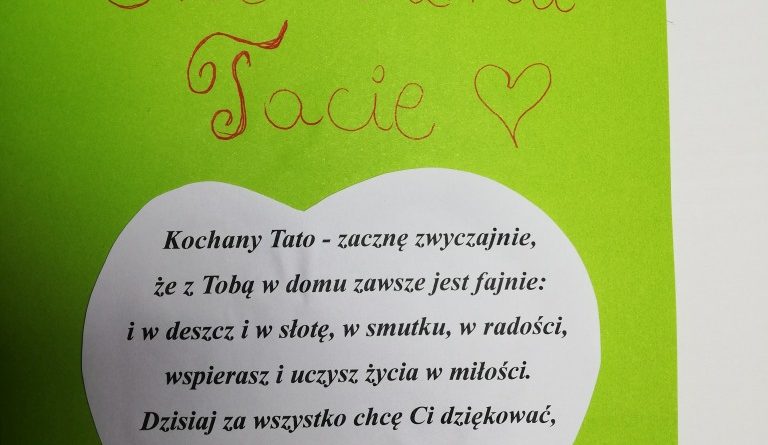 Tacie
Kochany Tato - zacznę zwyczajnie,
że z Tobą w domu zawsze jest fajnie:
i w deszcz i w słotę, w smutku, w radości,
wspierasz i uczysz życia w miłości.
Dzisiaj za wszystko chcę Ci dziękować,